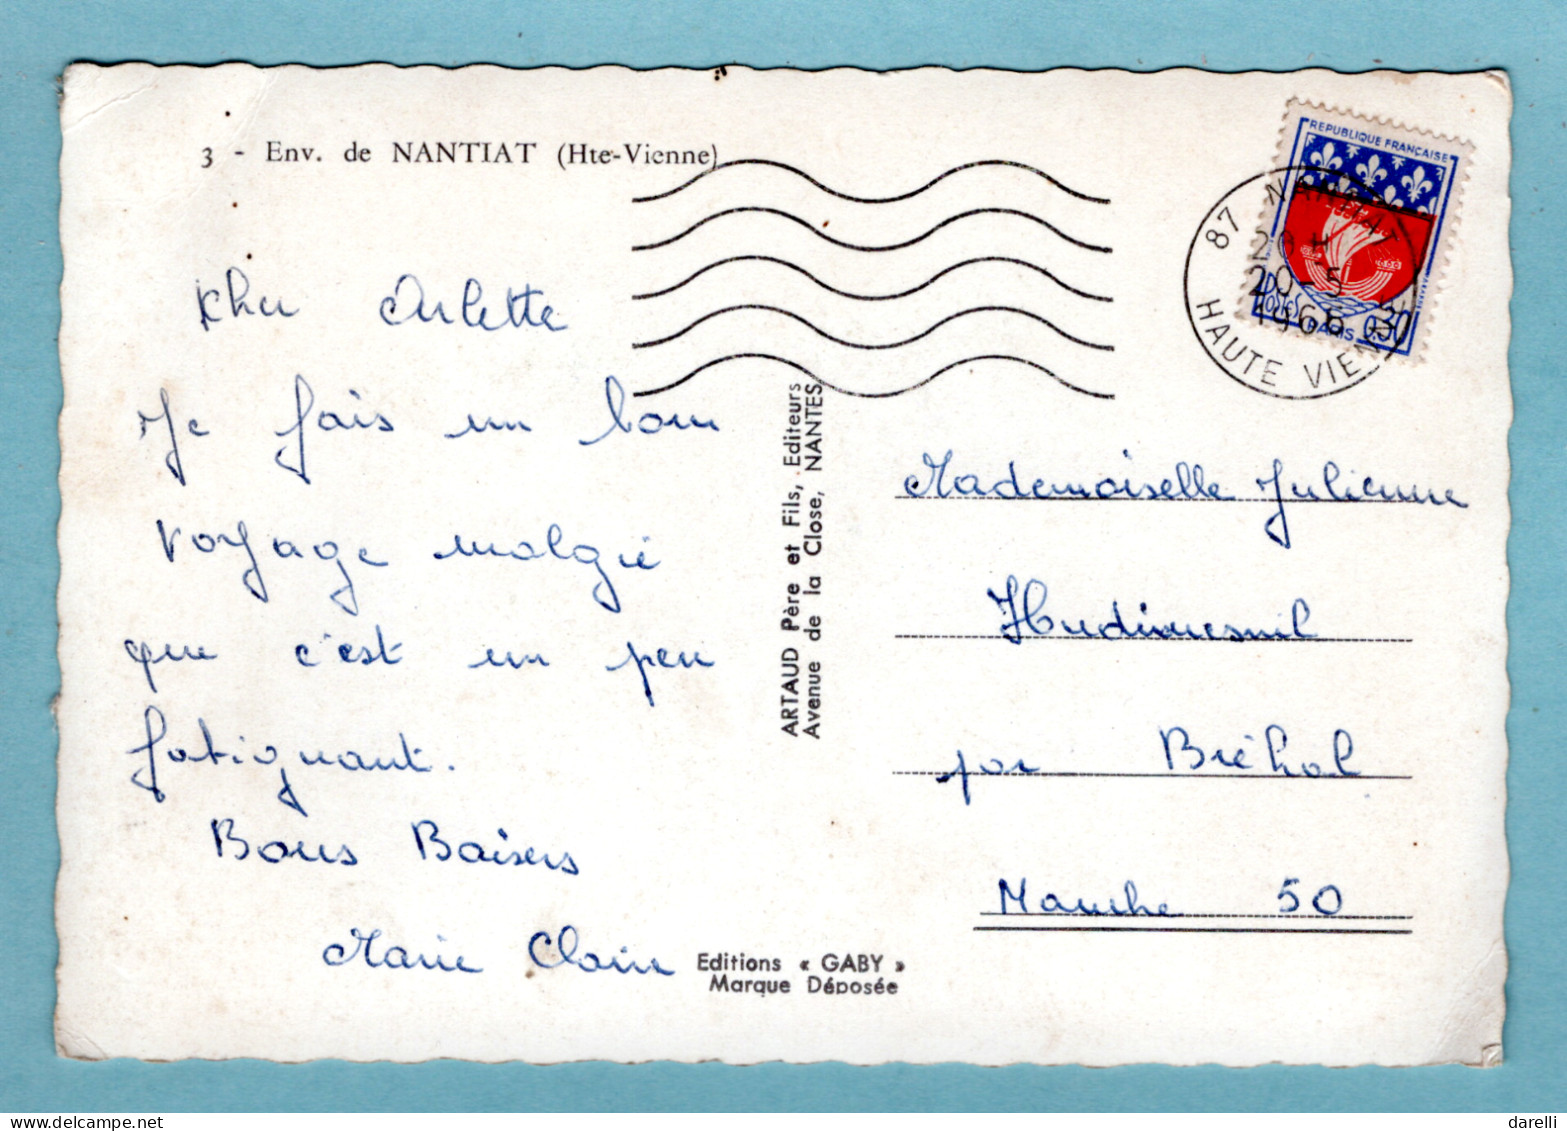 3 - Env. de NANTIAT (Hte-Vienne)
REPUBLIQUE FRANÇAISE
87 NANTIAT
20 H
20-5
1966
HAUTE VIENNE
PARIS 0,30
Cher Arlette
Je fais un bon
voyage malgré
que c'est un peu
fatiguant.
Bons Baisers
Marie Claire
ARTAUD Père et Fils, Editeurs
Avenue de la Close, NANTES
Mademoiselle Julienne
Hudimesnil
par Bréhal
Manche 50
Editions « GABY »
Marque Déposée
delcampe.net
darelli